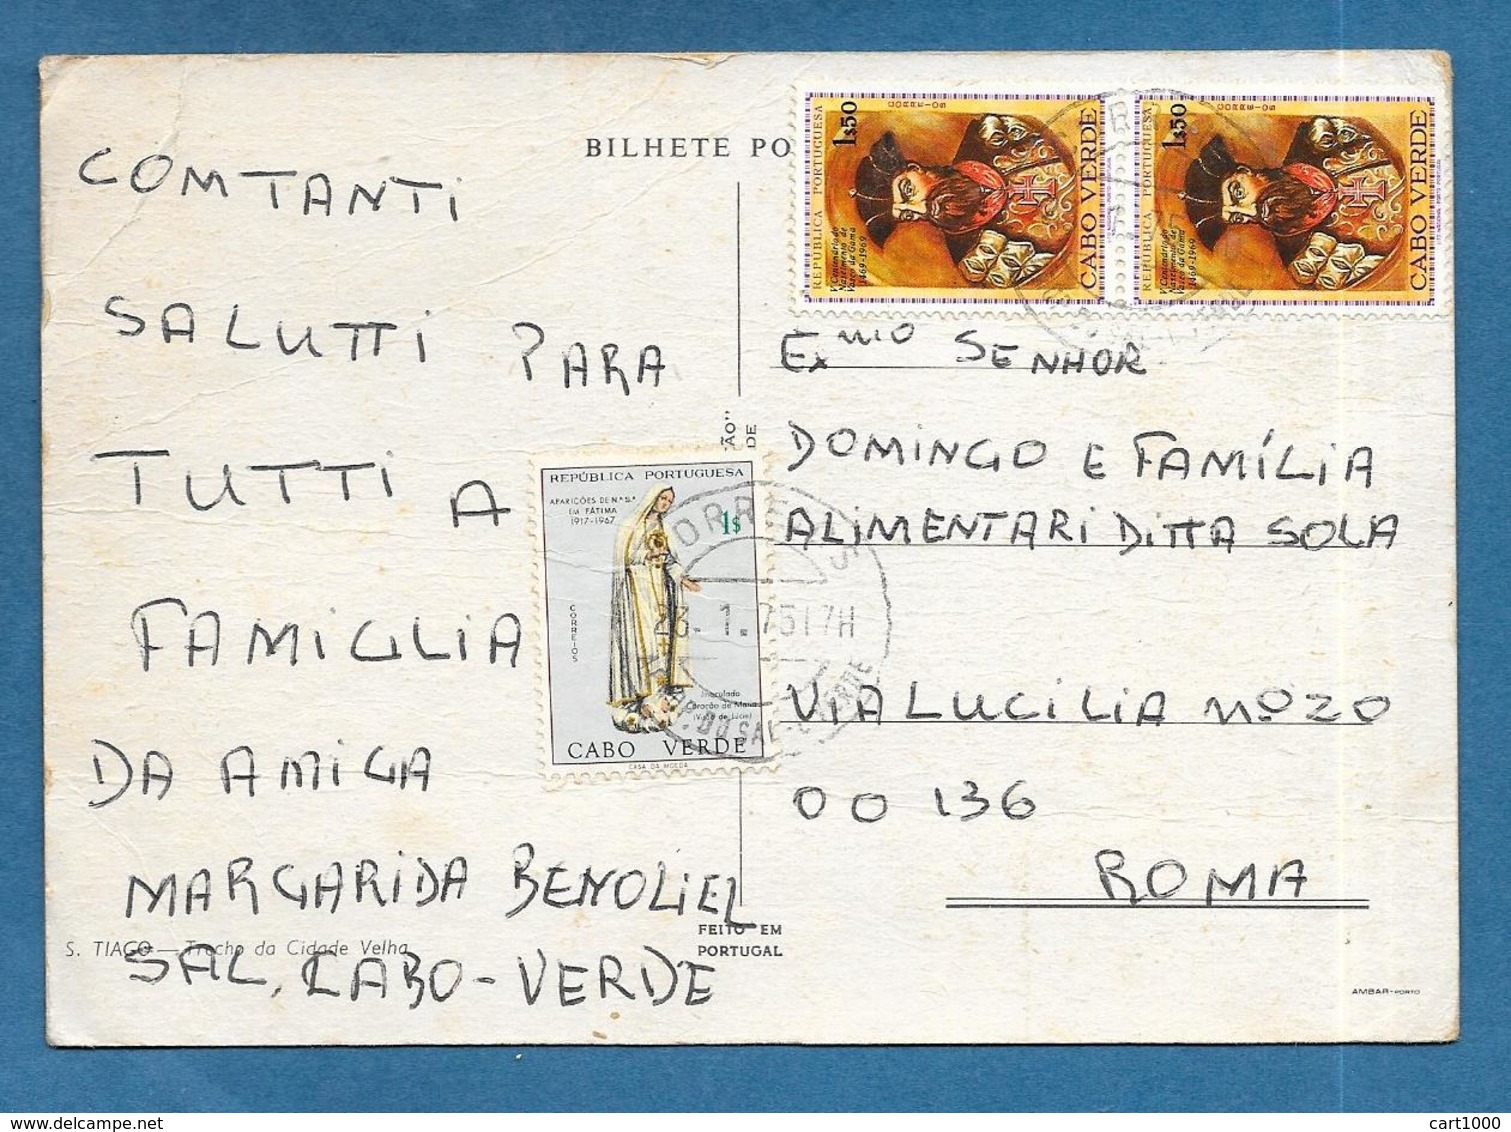 BILHETE PO
COMTANTI
SALUTTI PARA
TUTTI A
FAMIGLIA
DA AMIGA
MARGARIDA BENOLIEL
SAL, CABO-VERDE
S. TIAGO — Trecho da Cidade Velha
REPÚBLICA PORTUGUESA
APARIÇÕES DE N.ª S.ª
EM FÁTIMA
1917-1967
1$
CORREIOS
Imaculado
Coração de Maria
(Visão de Lúcia)
CABO VERDE
CASA DA MOEDA
CORREIOS
23. 1. 75 17H
REPÚBLICA PORTUGUESA
1$50
CORREIOS
V Centenário do
Nascimento de
Vasco da Gama
1469-1969
CABO VERDE
REPÚBLICA PORTUGUESA
1$50
CORREIOS
V Centenário do
Nascimento de
Vasco da Gama
1469-1969
CABO VERDE
ÇÃO"
DE
Exmo SENHOR
DOMINGO E FAMÍLIA
ALIMENTARI DITTA SOLA
VIA LUCILIA Nº 20
00136
ROMA
FEITO EM
PORTUGAL
AMBAR-PORTO
cart1000
www.delcampe.net